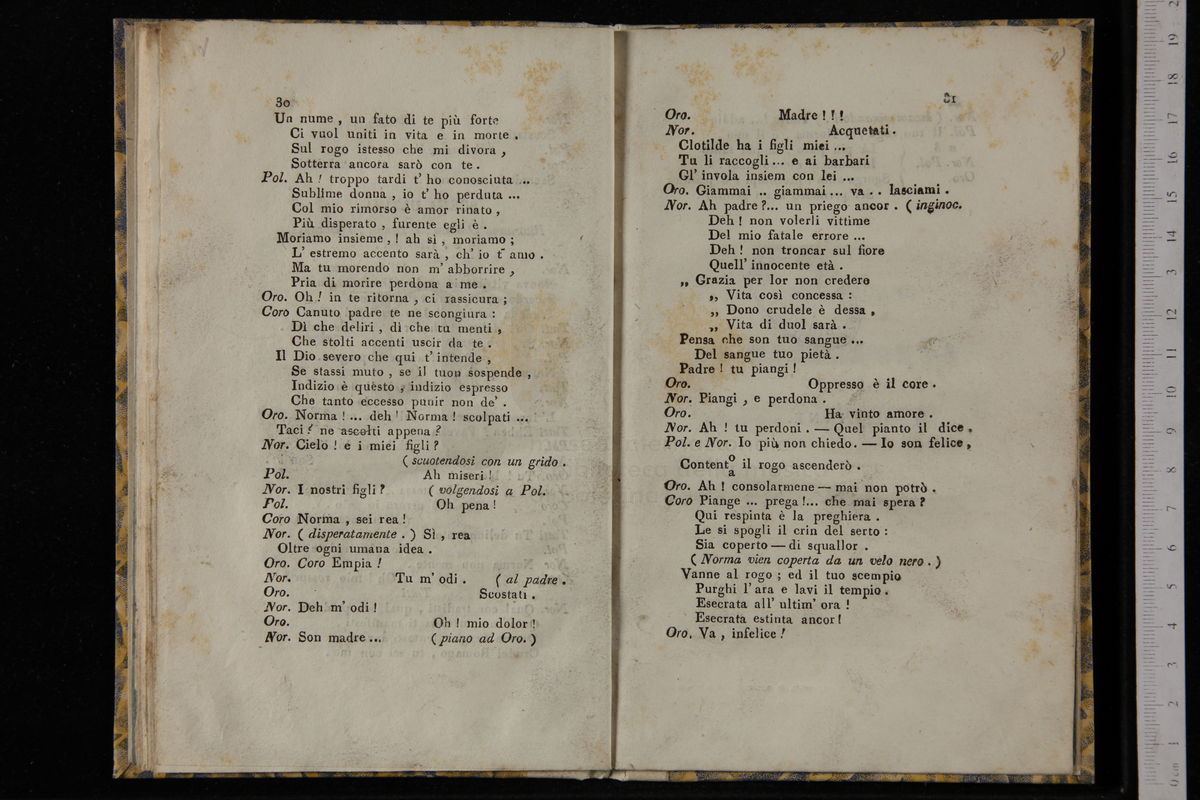 30
Un nume , un fato di te più forte
Ci vuol uniti in vita e in morte .
Sul rogo istesso che mi divora ,
Sotterra ancora sarò con te .
Pol. Ah ! troppo tardi t' ho conosciuta ...
Sublime donna , io t' ho perduta ...
Col mio rimorso è amor rinato ,
Più disperato , furente egli è .
Moriamo insieme , ! ah sì , moriamo ;
L' estremo accento sarà , ch' io t' amo .
Ma tu morendo non m' abborrire ,
Pria di morire perdona a me .
Oro. Oh ! in te ritorna , ci rassicura ;
Coro Canuto padre te ne scongiura :
Dì che deliri , dì che tu menti ,
Che stolti accenti uscir da te .
Il Dio severo che qui t' intende ,
Se stassi muto , se il tuon sospende ,
Indizio è questo , indizio espresso
Che tanto eccesso punir non de' .
Oro. Norma ! ... deh ! Norma ! scolpati ...
Taci ? ne ascolti appena ?
Nor. Cielo ! e i miei figli ?
( scuotendosi con un grido .
Pol. Ah miseri !
Nor. I nostri figli ? ( volgendosi a Pol.
Pol. Oh pena !
Coro Norma , sei rea !
Nor. ( disperatamente . ) Sì , rea
Oltre ogni umana idea .
Oro. Coro Empia !
Nor. Tu m' odi . ( al padre .
Oro. Scostati .
Nor. Deh m' odi !
Oro. Oh ! mio dolor !
Nor. Son madre ... ( piano ad Oro. )
31
Oro. Madre ! ! !
Nor. Acquetati .
Clotilde ha i figli miei ...
Tu li raccogli ... e ai barbari
Gl' invola insiem con lei ...
Oro. Giammai .. giammai ... va . . lasciami .
Nor. Ah padre ?... un priego ancor . ( inginoc.
Deh ! non volerli vittime
Del mio fatale errore ...
Deh ! non troncar sul fiore
Quell' innocente età .
,, Grazia per lor non credere
,, Vita così concessa :
,, Dono crudele è dessa ,
,, Vita di duol sarà .
Pensa che son tuo sangue ...
Del sangue tuo pietà .
Padre ! tu piangi !
Oro. Oppresso è il core .
Nor. Piangi , e perdona .
Oro. Ha vinto amore .
Nor. Ah ! tu perdoni . — Quel pianto il dice .
Pol. e Nor. Io più non chiedo. — Io son felice ,
Content o/a il rogo ascenderò .
Oro. Ah ! consolarmene — mai non potrò .
Coro Piange ... prega !... che mai spera ?
Qui respinta è la preghiera .
Le si spogli il crin del serto :
Sia coperto — di squallor .
( Norma vien coperta da un velo nero . )
Vanne al rogo ; ed il tuo scempio
Purghi l' ara e lavi il tempio .
Esecrata all' ultim' ora !
Esecrata estinta ancor !
Oro. Va , infelice !